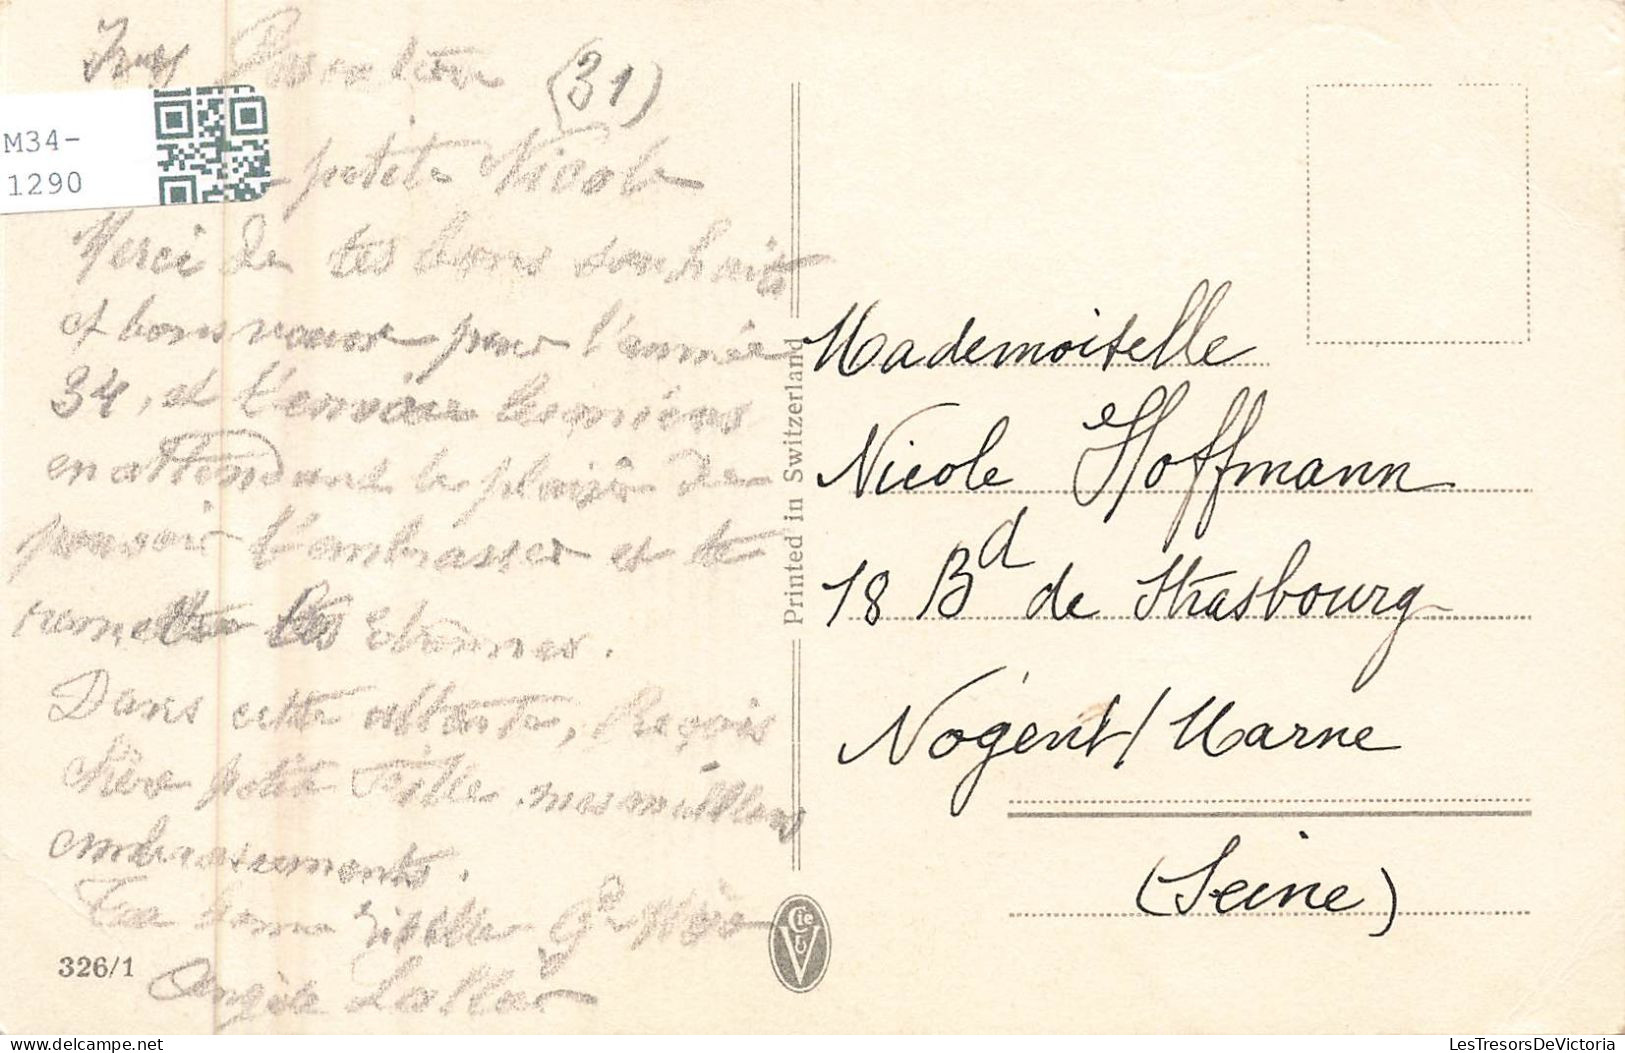 (31)
M34-
1290
petite Nicole
Merci de tes bons souhaits
et bons vœux pour l'année
34, et t'envoie les miens
en attendant le plaisir de
pouvoir t'embrasser et te
remettre tes étrennes.
Dans cette attente, Reçois
chère petite fille mes meilleurs
embrassements.
Ta bonne vieille Gd Mère
Angèle
326/1
Printed in Switzerland
Cie
V
Mademoiselle
Nicole Hoffmann
18 Bd de Strasbourg
Nogent/Marne
(Seine)
LesTresorsDeVictoria